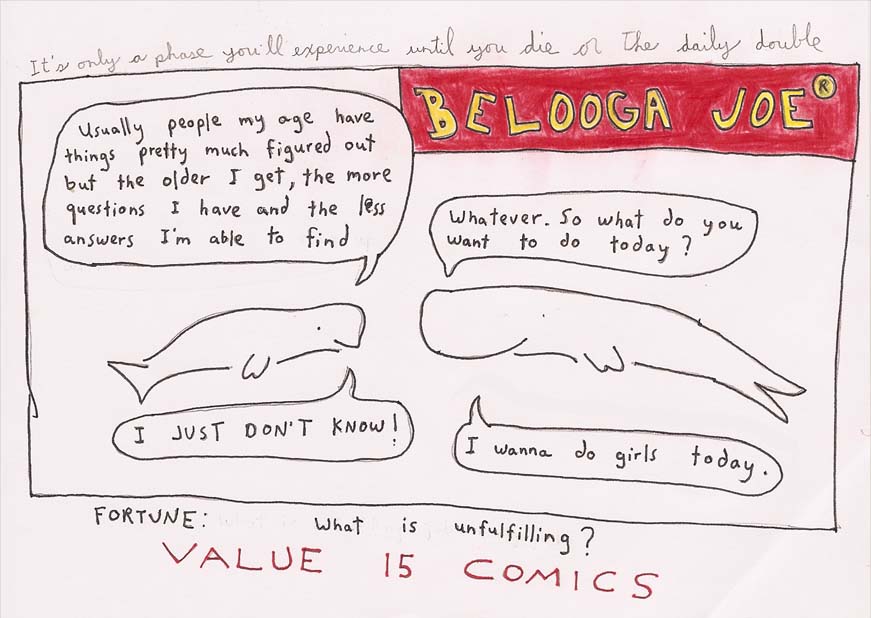 It's only a phase you'll experience until you die or The daily double
BELOOGA JOE®
Usually people my age have
things pretty much figured out
but the older I get, the more
questions I have and the less
answers I'm able to find
Whatever. So what do you
want to do today?
I JUST DON'T KNOW!
I wanna do girls today.
FORTUNE: What is unfulfilling?
VALUE 15 COMICS